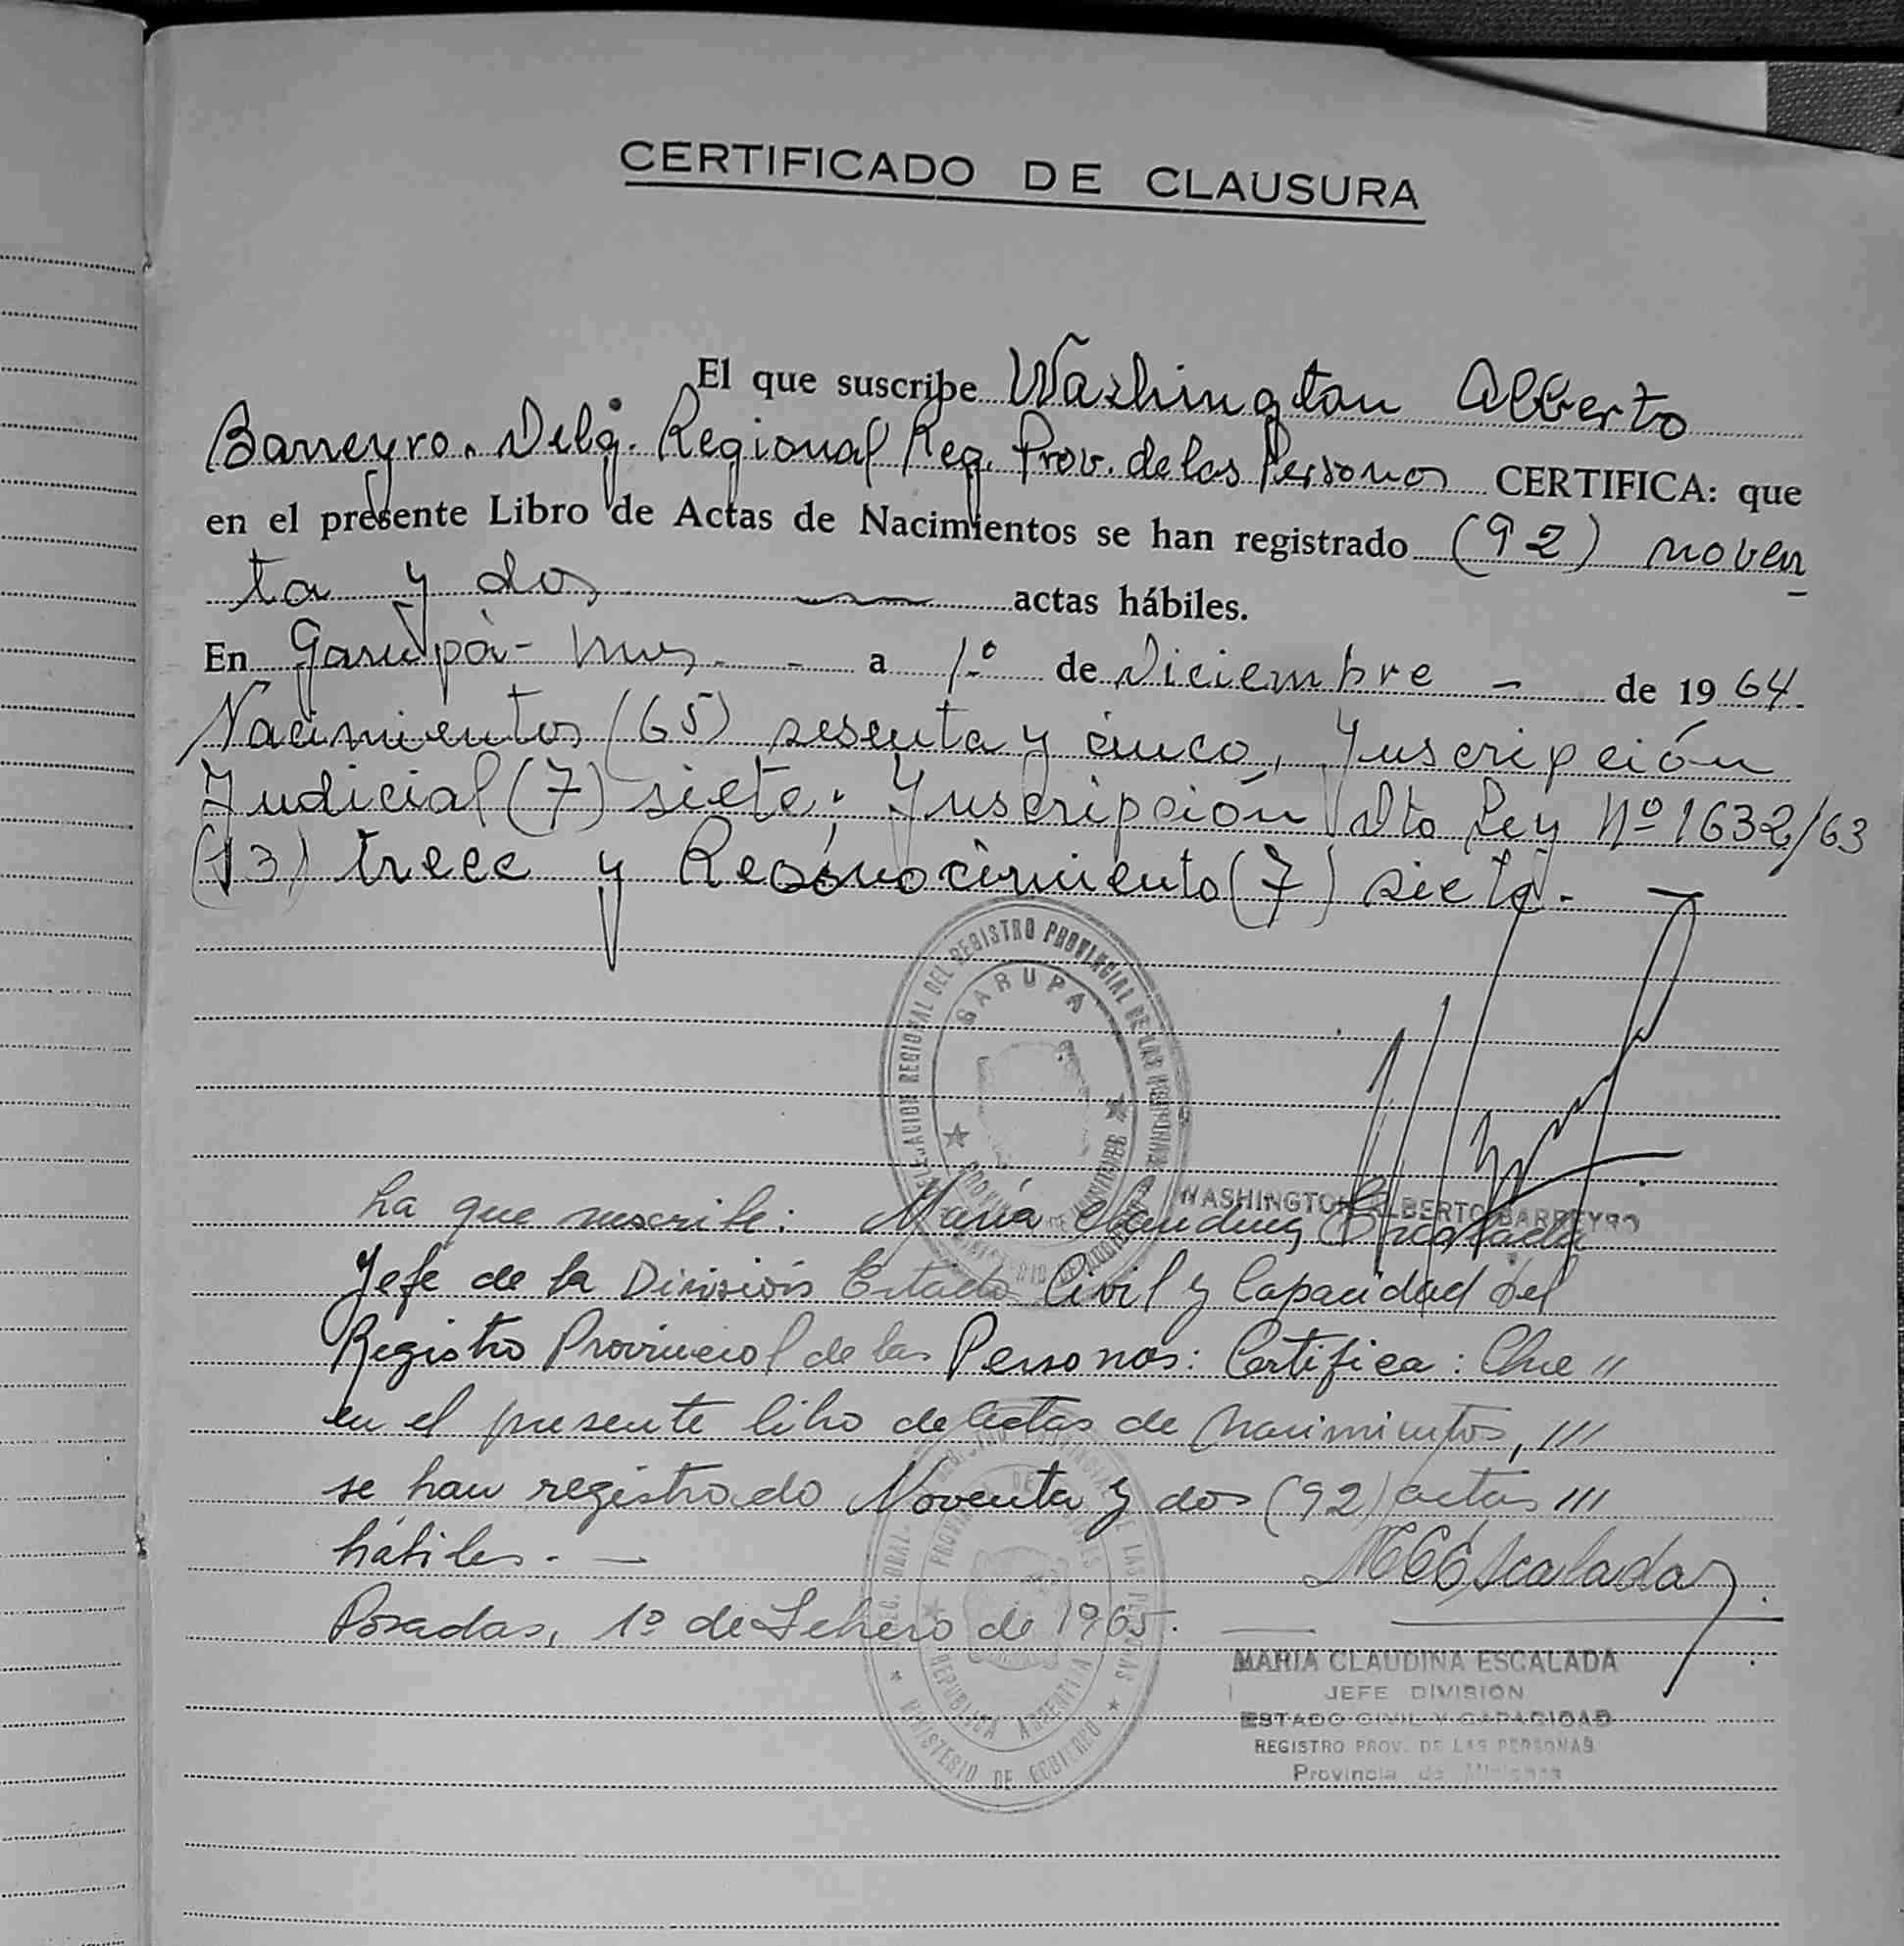 CERTIFICADO DE CLAUSURA
El que suscribe Washington Alberto
Barreyro. Delg. Regional Reg. Prov. de las Personas CERTIFICA: que
en el presente Libro de Actas de Nacimientos se han registrado (92) noven
ta y dos actas hábiles.
En Garupá - Mnes. - a 1º de Diciembre - de 1964.
Nacimientos (65) sesenta y cinco, Inscripción
Judicial (7) siete; Inscripción Dto Ley Nº 1632/63
(13) trece y Reconocimiento (7) siete. -
DELEGACION REGIONAL DEL REGISTRO PROVINCIAL DE LAS PERSONAS
GARUPA
WASHINGTON ALBERTO BARREYRO
La que suscribe: María Claudina Escalada
Jefe de la División Estado Civil y Capacidad del
Registro Provincial de las Personas: Certifica: Que "
en el presente libro de actas de Nacimientos, ///
se han registrado Noventa y dos (92) actas ///
hábiles. -
MCEscalada
Posadas, 1º de Febrero de 1965. -
DIREC. GRAL. REGISTRO PROVINCIAL DE LAS PERSONAS
PROVINCIA DE MISIONES
REPUBLICA ARGENTINA
MINISTERIO DE GOBIERNO
MARIA CLAUDINA ESCALADA
JEFE DIVISION
ESTADO CIVIL Y CAPACIDAD
REGISTRO PROV. DE LAS PERSONAS
Provincia de Misiones